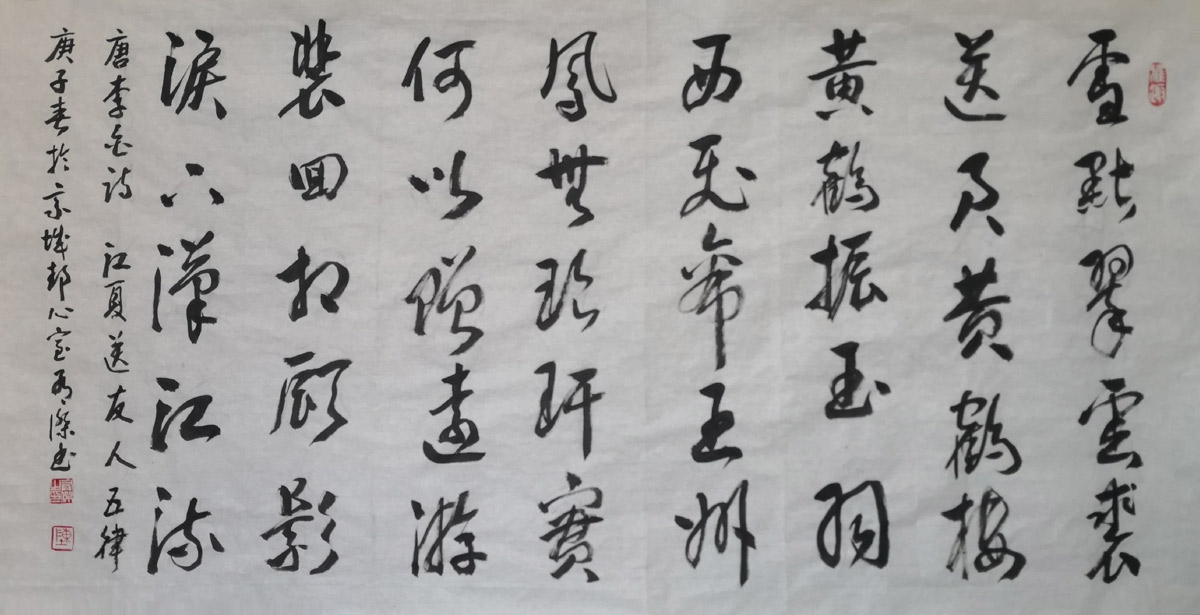 雪點翠雲裘
送君黃鶴樓
黃鶴振玉羽
西飛帝王州
鳳無琅玕實
何以贈遠游
裴回相顧影
淚下漢江流
唐李白詩 江夏送友人 五律
庚子春於京城心室书